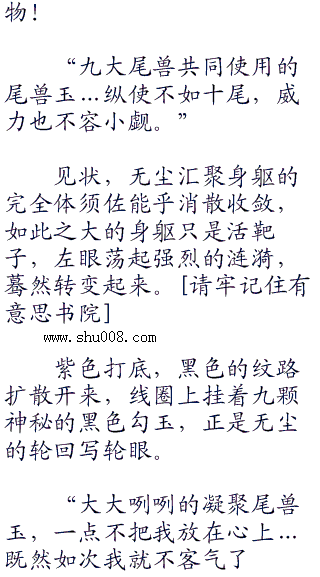 物！
“九大尾兽共同使用的
尾兽玉…纵使不如十尾，威
力也不容小觑。”
见状，无尘汇聚身躯的
完全体须佐能乎消散收敛，
如此之大的身躯只是活靶
子，左眼荡起强烈的涟漪，
蓦然转变起来。[请牢记住有
意思书院]
www.shu008.com
紫色打底，黑色的纹路
扩散开来，线圈上挂着九颗
神秘的黑色勾玉，正是无尘
的轮回写轮眼。
“大大咧咧的凝聚尾兽
玉，一点不把我放在心上…
既然如次我就不客气了